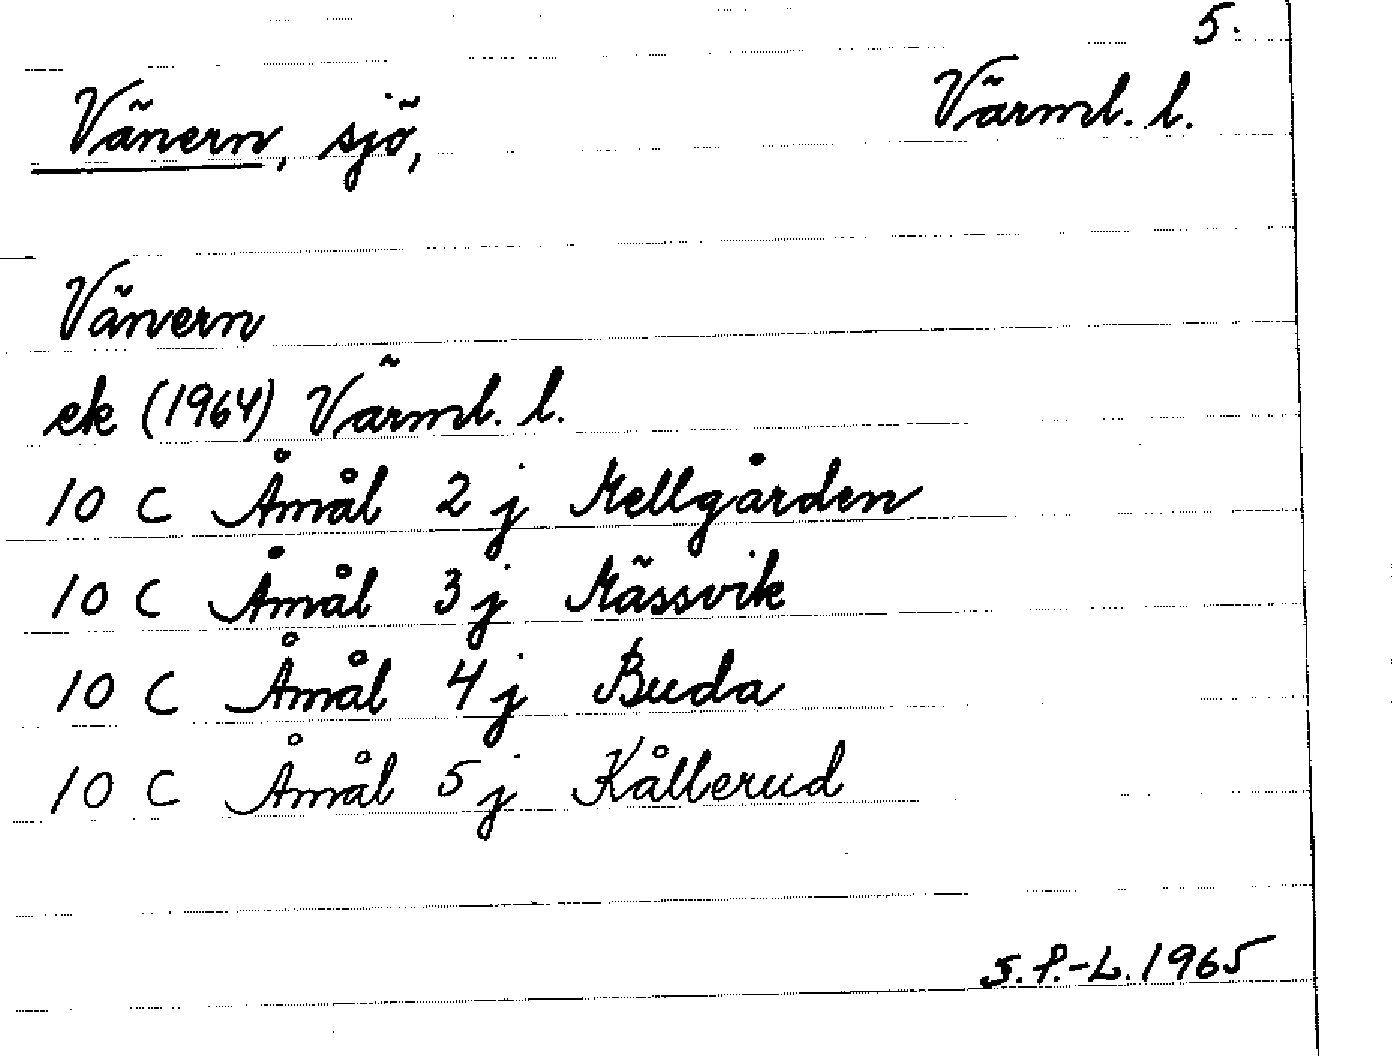 5.
Vänern, sjö, Värml. l.
Vänern
ek (1964) Värml. l.
10 C Åmål 2 j Mellgården
10 C Åmål 3 j Mässvik
10 C Åmål 4 j Buda
10 C Åmål 5 j Kållerud
S.P.-L. 1965